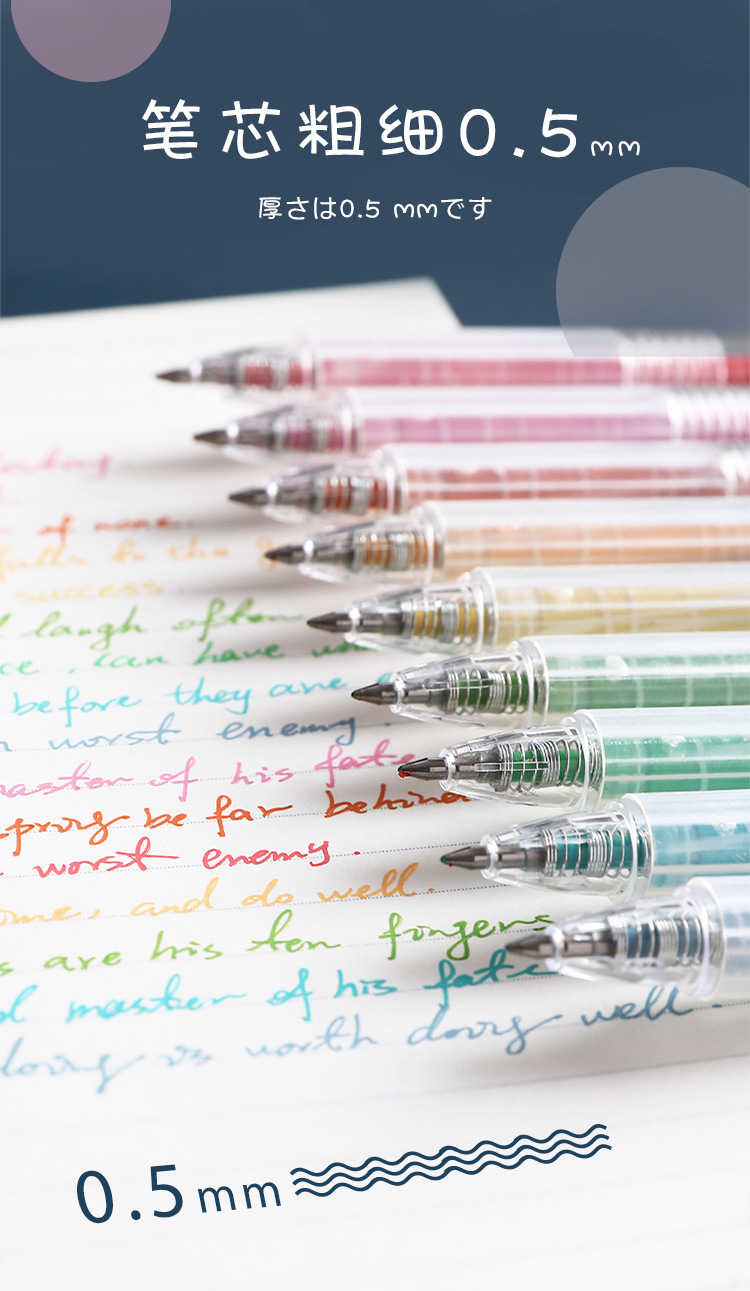 笔芯粗细0.5mm
厚さは0.5 mmです
of none.
falls to the
success.
laugh often
ce. can have
before they are
worst enemy.
master of his fate
spring be far behind
worst enemy.
ome, and do well.
s are his ten fingers
l master of his fate
doing is worth doing well.
0.5mm